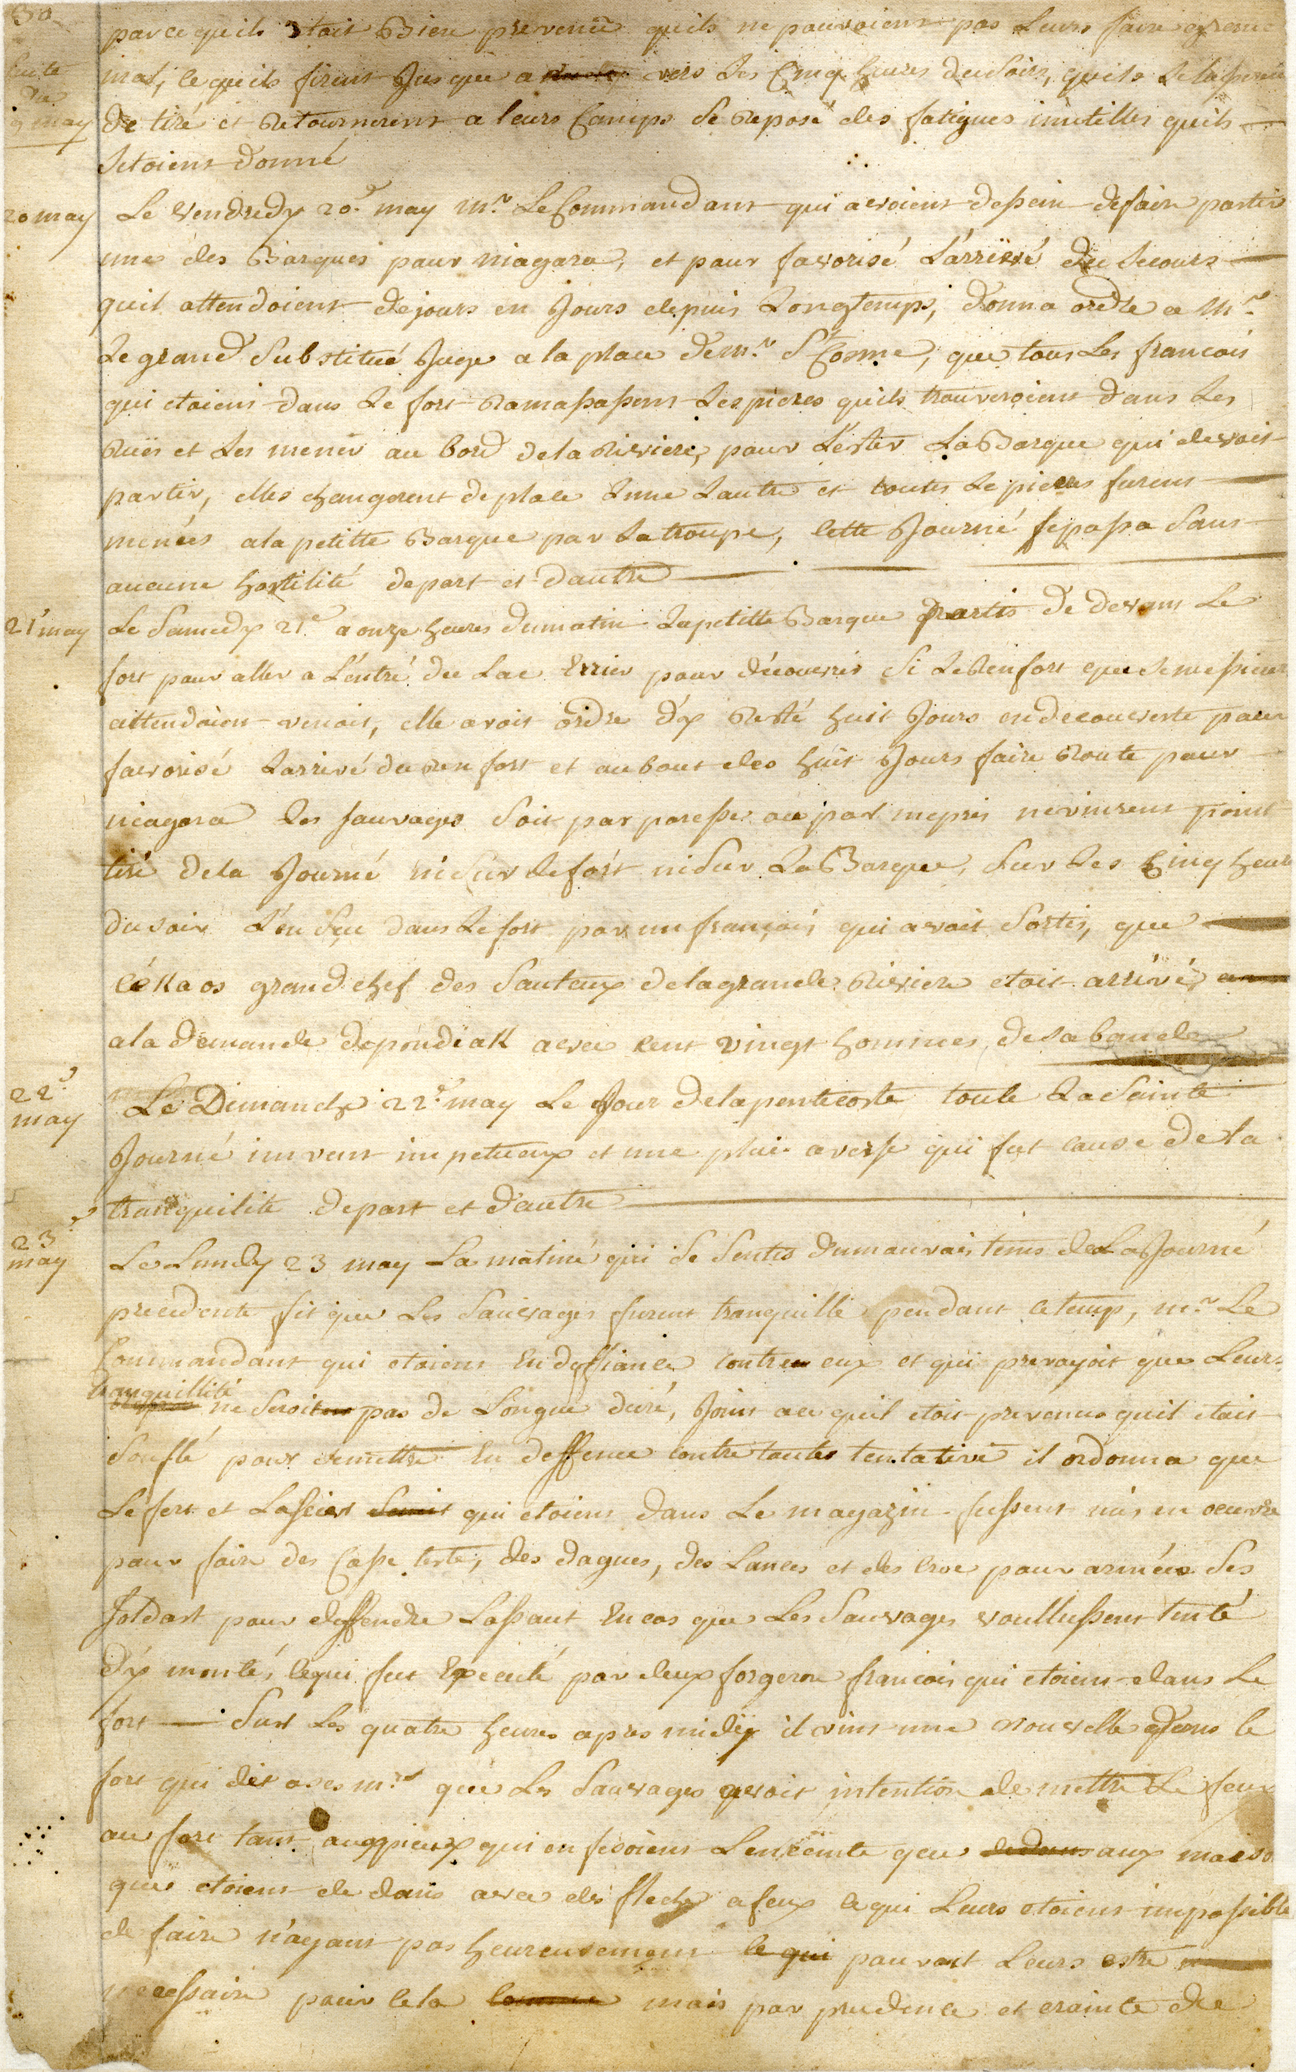 30
parce quils Etoit Bien prevenuë quils ne pouvoient pas Leurs faire
Suite
du
9 may
mal, ce quils firent Jusque a vers Les Cinq heures du Soirs, quils se
de tiré et Retournerent a leurs Camps Se Reposé des fatigues inutilles quils
Setoient donné
20 may
Le vendredy 20.e may mr. Le Commandant qui avoient dessein de faire partir
une des Barques pour niagara, et pour favorisé L'arrivé du Secours
quil attendoient de jours en Jours depuis Longtemps, donna ordre a Mr.
Le grand Substitué Juge a la place de mr. St Cosme, que tous Les francois
qui etoient dans Le fort Ramassassent Les pieres quils trouveroient dans Les
Ruës et Les mener au bord de la Riviere, pour Lester La Barque qui devoit
partir, elles changerent de place Lune Lautre et toutes Le pieres furent
menées a la petitte Barque par La troupe, Cette Journé se passa Sans
aucune hostilité de part et dautre
21 may
Le Samedy 21.e a onze heures du matin La petitte Barque partis de devant Le
fort pour aller a Lentré du Lac Errier pour découvrir Si Le Renfort que Se messieur
attendoien venoit, elle avoit ordre dy Resté huit Jours en decouverte pour
favorisé Larrivé du renfort et au bout des huit Jours faire Route pour
niagara Les Sauvages Soit par paresse ou par mepris ne vinrent point
tiré de la Journé ni Sur le fort ni Sur La Barque, Sur Les Cinq heur
du soir L'en Sçu dans Le fort par un françois qui avoit Sortis, que
Cékaos grand chef des Sauteux de la grande Riviere etoit arrivé
a la demande de pondiak avec cent vingt hommes de sa bande
22.e
may
Le Dimanche 22.e may Le Jour de la pentecoste toute La Sainte
Journé un vent impetueux et une pluie a verse qui fut cause de la
tranquilité de part et d'autre
23.e
may
Le Lundy 23 may La matiné qui Se Sentis du mauvais tems de La Journé
precedente fit que Les Sauvages furent tranquille pendant ce temp, mr. Le
Commandant qui etoient En deffiance contre eux et qui prevoyoit que Leurs
tranquillité
ne Seroit pas de Longue duré, Joint a ce quil etoit prevenu quil etait
Soufflé pour se mettre En deffence contre toutes tentative il ordonna que
Le fert et Lascier qui etoient dans Le magazin fussent mis en oeuvre
pour faire des Casse teste, des dagues, des Lances et des croc pour armée Ses
Soldast pour deffendre Lassaut En cas que Les Sauvages voullussent tenté
d'y montés, ce qui fut Executé par deux forgeron francois qui etoient dans Le
fort Sur Les quatre heures apres midy il vint une nouvelle dans le
fort qui dit a ses mrs. que Les Sauvages avoit intention de mettre Le feux
au fort tant aux pieux qui en fesoient Lenceinte que aux maison
qui etoient de dans avec des fleche a feux ce qui Leurs etoient impossible
de faire n'ayant pas heureusement ce qui pouvoit Leurs estre
necessaire pour cela mais par prudence et crainte de